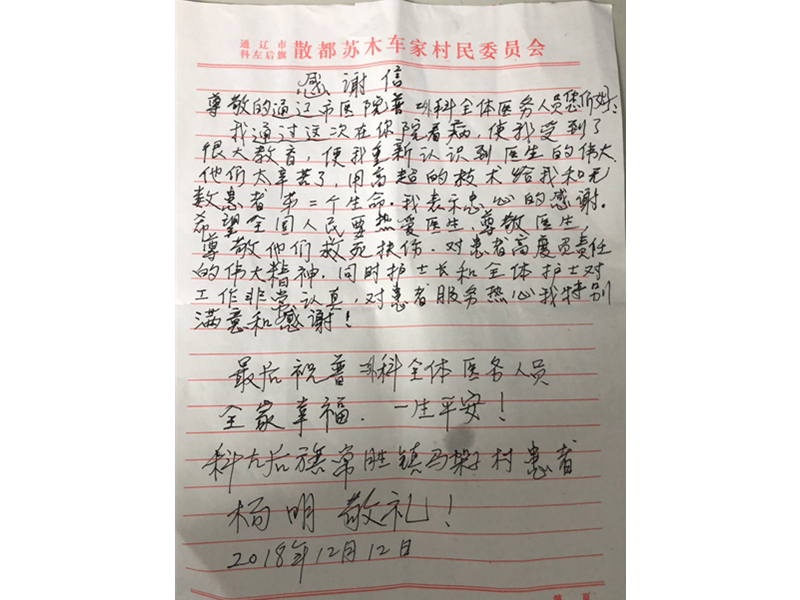 通辽市
科左后旗 散都苏木车家村民委员会
感谢信
尊敬的通辽市医院普外科全体医务人员您们好:
我通过这次在你院看病,使我受到了
很大教育,使我重新认识到医生的伟大.
他们太辛苦了,用高超的技术给我和无
数患者第二个生命.我表示忠心的感谢.
希望全国人民要热爱医生,尊敬医生,
尊敬他们救死扶伤.对患者高度负责任
的伟大精神,同时护士长和全体护士对
工作非常认真,对患者服务热心我特别
满意和感谢!
最后祝普外科全体医务人员
全家幸福.一生平安!
科左后旗常胜镇马架子村患者
杨明 敬礼!
2018年12月12日